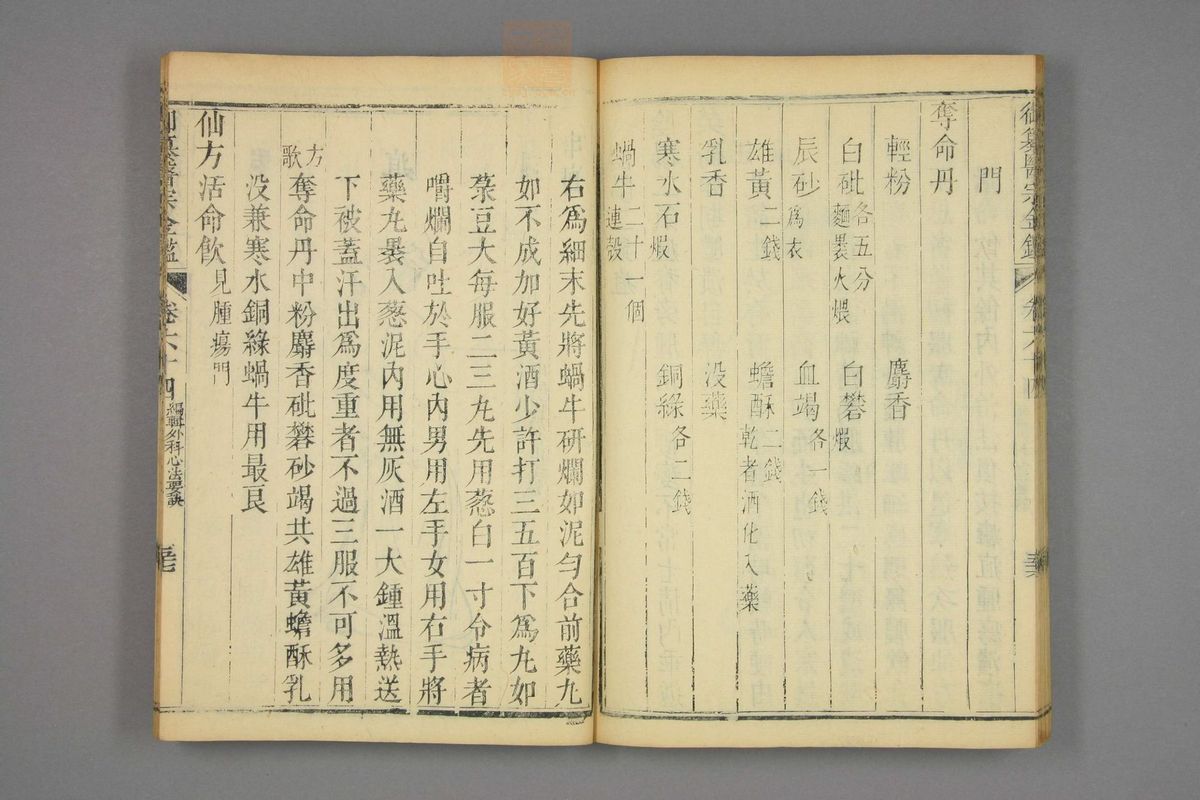 御纂醫宗金鑑 卷六十四
門
奪命丹
輕粉 麝香
白砒各五分麵裹火煨 白礬煆
辰砂爲衣 血竭各一錢
雄黃二錢 蟾酥二錢乾者酒化入藥
乳香 没藥
寒水石煆 銅綠各二錢
蝸牛二十一個連殼
右爲細末先將蝸牛研爛如泥勻合前藥九
如不成加好黃酒少許打三五百下爲丸如
菉豆大每服二三丸先用葱白一寸令病者
嚼爛自吐於手心內男用左手女用右手將
藥丸裹入葱泥內用無灰酒一大鍾溫熱送
下被蓋汗出爲度重者不過三服不可多用
方歌 奪命丹中粉麝香砒礬砂竭共雄黃蟾酥乳
没兼寒水銅綠蝸牛用最良
仙方活命飲見腫瘍門
御纂醫宗金鑑 卷六十四 編輯外科心法要訣